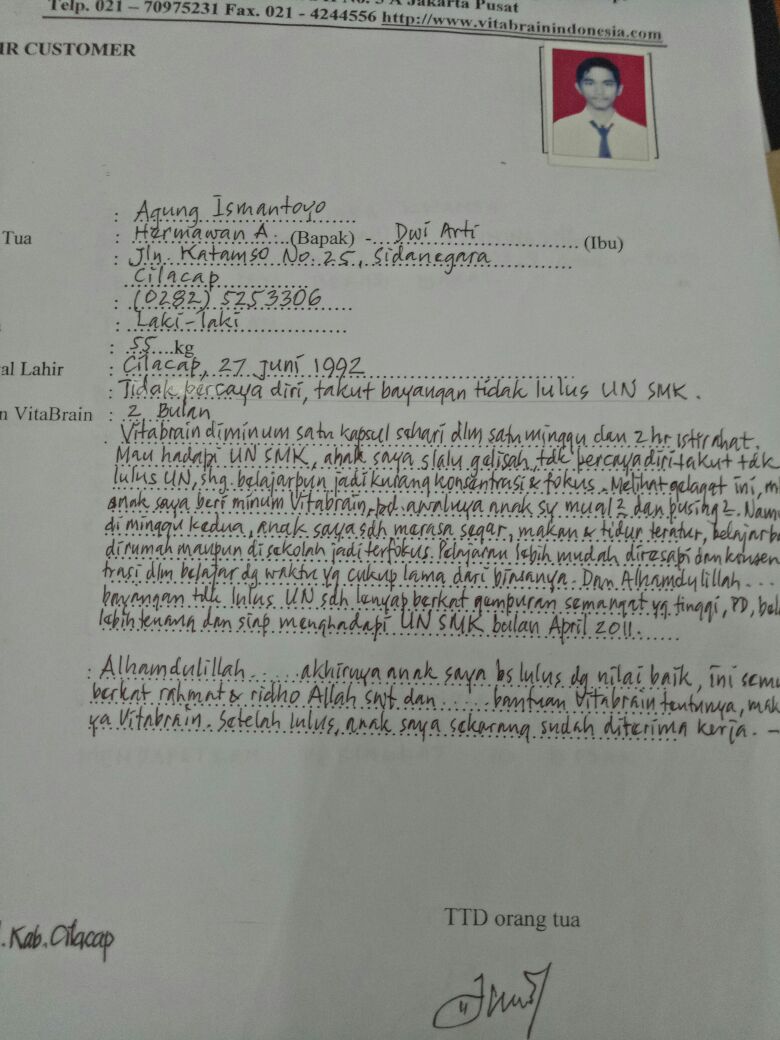 Telp. 021 – 70975231 Fax. 021 - 4244556 http://www.vitabrainindonesia.com
IR CUSTOMER
: Agung Ismantoyo
Tua : Hermawan A. (Bapak) - Dwi Arti (Ibu)
: Jln. Katamso No. 25, Sidanegara
Cilacap
: (0282) 5253306
: Laki-laki
: 55 kg
al Lahir : Cilacap, 27 Juni 1992
: Tidak percaya diri, takut bayangan tidak lulus UN SMK.
n VitaBrain : 2 Bulan
Vitabrain diminum satu kapsul sehari dlm satu minggu dan 2 hr istirahat.
Mau hadapi UN SMK, anak saya slalu gelisah, tdk percaya diri takut tdk
lulus UN, shg belajarpun jadi kurang konsentrasi & fokus. Melihat gelagat ini,
anak saya beri minum Vitabrain, pd awalnya anak sy mual2 dan pusing2.
di minggu kedua, anak saya sdh merasa segar, makan & tidur teratur,
dirumah maupun di sekolah jadi terfokus. Pelajaran lebih mudah diresapi dan konsen
trasi dlm belajar dg waktu yg cukup lama dari biasanya. Dan Alhamdulillah...
bayangan tdk lulus UN sdh lenyap berkat gempuran semangat yg tinggi, PD,
lebih tenang dan siap menghadapi UN SMK bulan April 2011.
: Alhamdulillah..... akhirnya anak saya bs lulus dg nilai baik, ini
berkat rahmat & ridho Allah swt dan ...... bantuan Vitabrain tentunya,
ya Vitabrain. Setelah lulus, anak saya sekarang sudah diterima kerja. –
TTD orang tua
. Kab. Cilacap